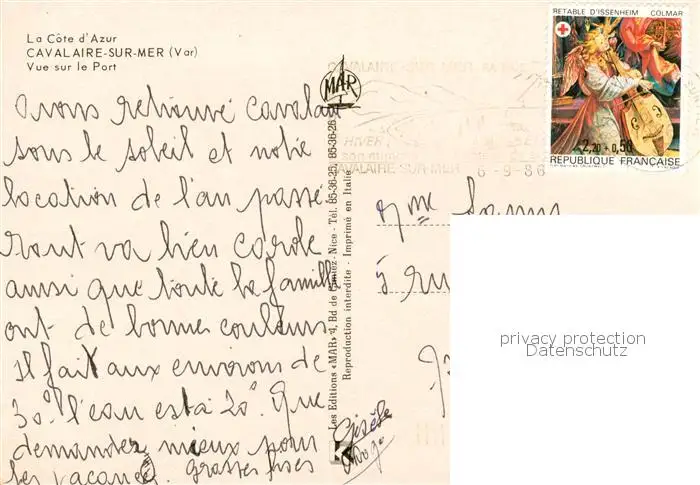 La Côte d'Azur
CAVALAIRE-SUR-MER (Var)
Vue sur le Port
Avons retrouvé Cavalaire
sous le soleil et notre
location de l'an passé
Tout va bien Carole
ainsi que toute la famille
ont de bonnes couleurs
il fait aux environs de
30° l'eau est à 20°. Que
demander mieux pour
les vacances grosses bises
Gisèle
MAR
Les Editions «MAR» 4, Bd de Cimiez-Nice - Tél. 85-36-25 85-36-26
Reproduction interdite - Imprimé en Italie
CAVALAIRE-SUR-MER
HIVER
CAVALAIRE-SUR-MER 8-9-86
RETABLE D'ISSENHEIM COLMAR
2,20+0,50
REPUBLIQUE FRANÇAISE
Mme
5 rue
privacy protection
Datenschutz